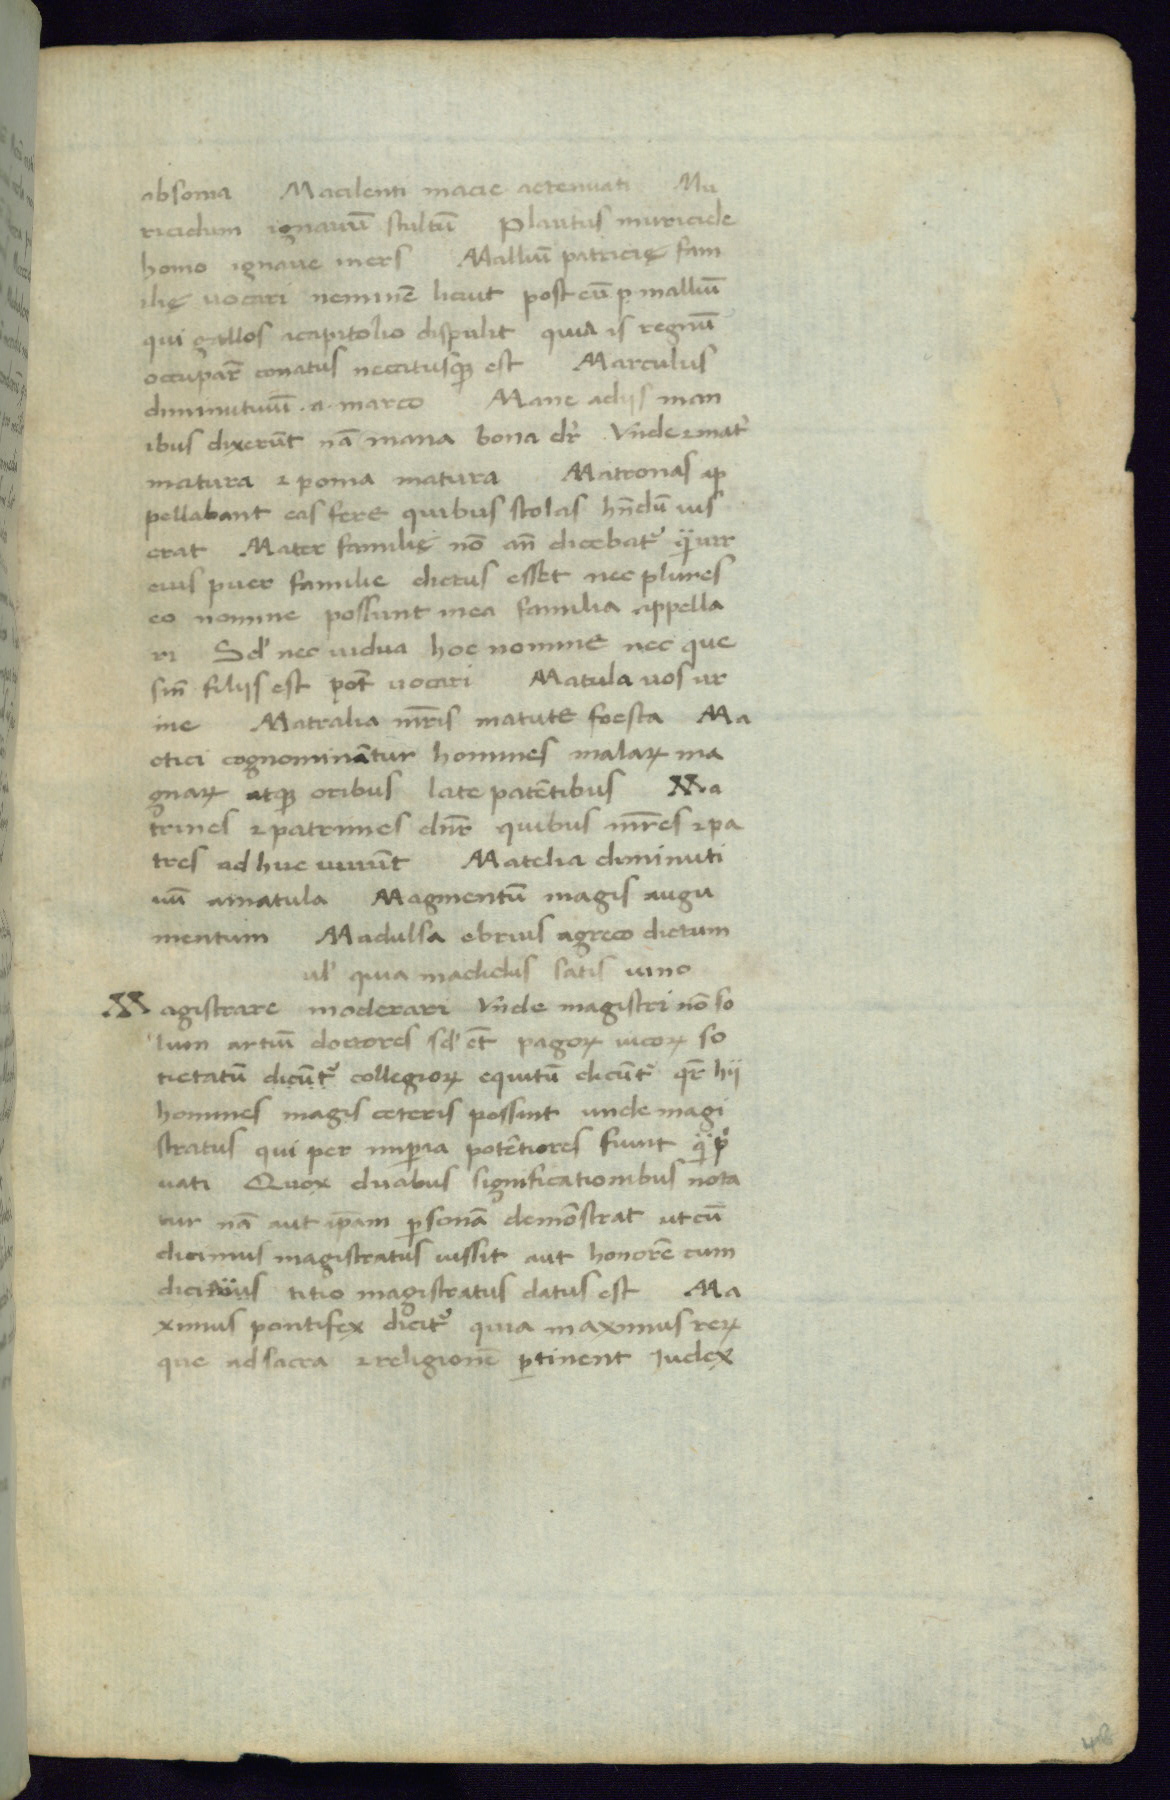 absona Macilenti macie actenuati Mu
ricidum ignauū stultū Plautus muricide
homo ignaue iners Malliū patricię fam
ilię uocari neminē licuit post eū p malliū
qui gallos acapitolio dispulit quia is regnū
occupar̄ conatus necatusqꝫ est Marculus
diminutiuū .a. marco Mane adijs man
ibus dixerūt nā mana bona dr̄ Vn̄de ⁊ mat᷑
matura ⁊ poma matura Matronas ap
pellabant eas fere quibus stolas hn̄dū ius
erat Mater familię nō an̄ dicebat᷑ q̄ uir
eius puer familie dictus esset nec plures
eo nomine possunt mea familia appella
ri Sd' nec uidua hoc nomine nec que
sin̄ filijs est pōt uocari Matula uos ur
ine Matralia mr̄is matute foesta Ma
otici cognominātur homines malaꝝ ma
gnaꝝ atqꝫ oribus late patētibus Ma
trines ⁊ patrimes dn̄r quibus mr̄es ⁊ pa
tres ad huc uiuūt Matelia diminuti
uū amatula Magmentū magis augu
mentum Madulsa ebrius agreco dictum
ul' quia madidus satis uino
Magistrare moderari Vn̄de magistri nō so
lum artiū doctores sd' et̄ pagoꝝ uicoꝝ so
tietatū dicūt᷑ collegioꝝ equitū dicūt᷑ qr̄ hij
homines magis ceteris possint unde magi
stratus qui per imp̄ia potētiores fiunt q̄ pͥ
uati Quox duabus significationibus nota
tur nā aut ip̄am ꝑsonā demōstrat ut cū
dicimus magistratus iussit aut honorē cum
dicimus titio magistratus datus est Ma
ximus pontifex dicit᷑ quia maximus reꝝ
que ad sacra ⁊ religionē ꝑtinent Iudex
48